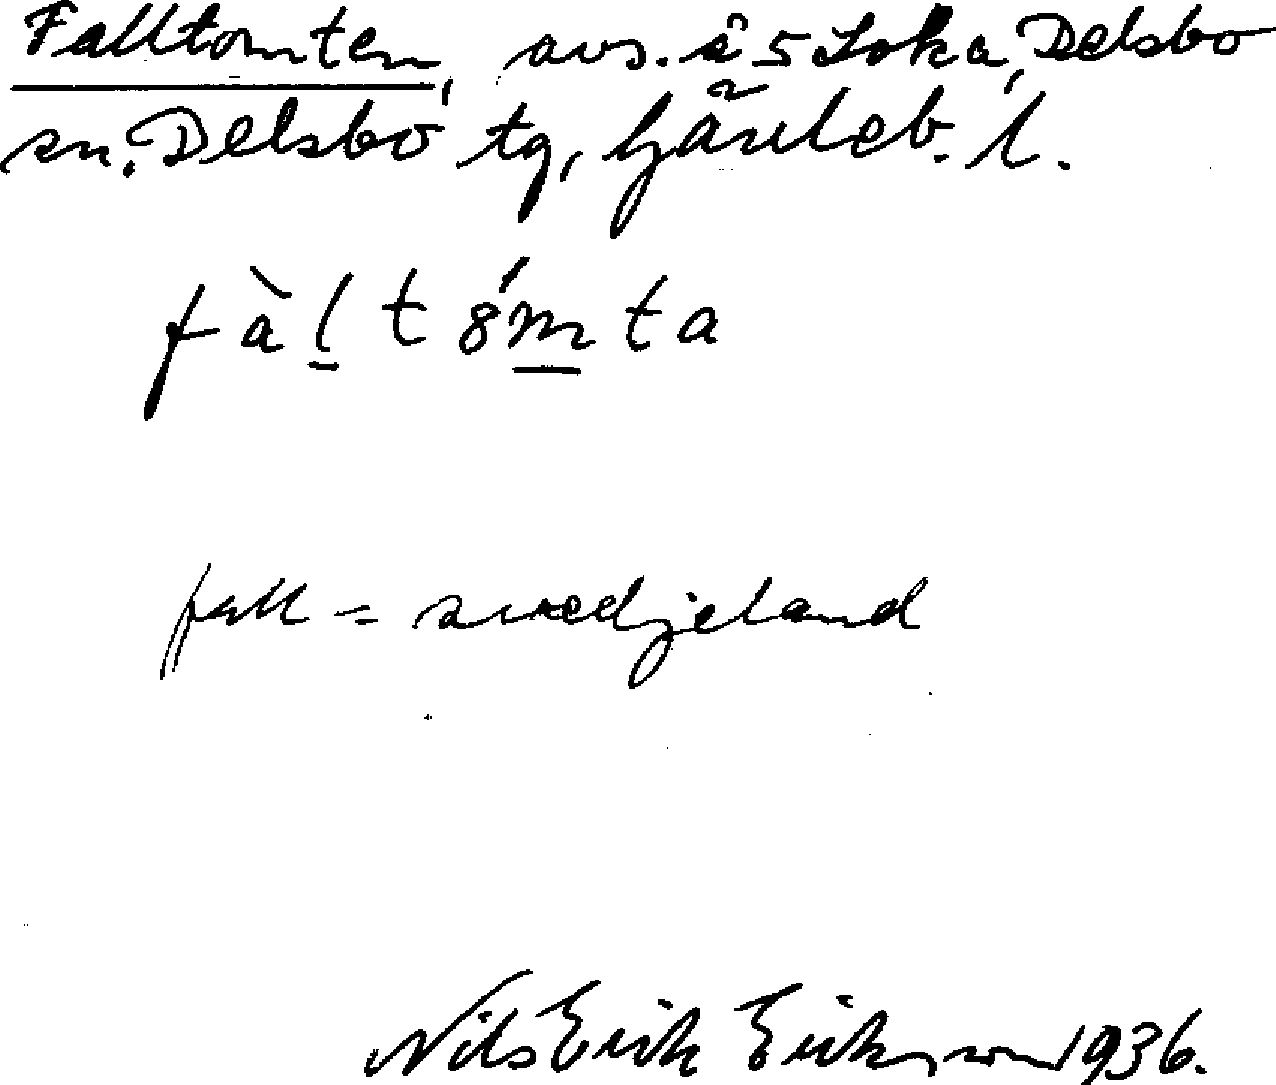 Falltomten, avs. å 5 Loka, Delsbo
sn. Delsbo tg, Gävleb. l.
fàl̠t8́m̠ta
fall = svedjeland
Nils Erik Eriksson 1936.